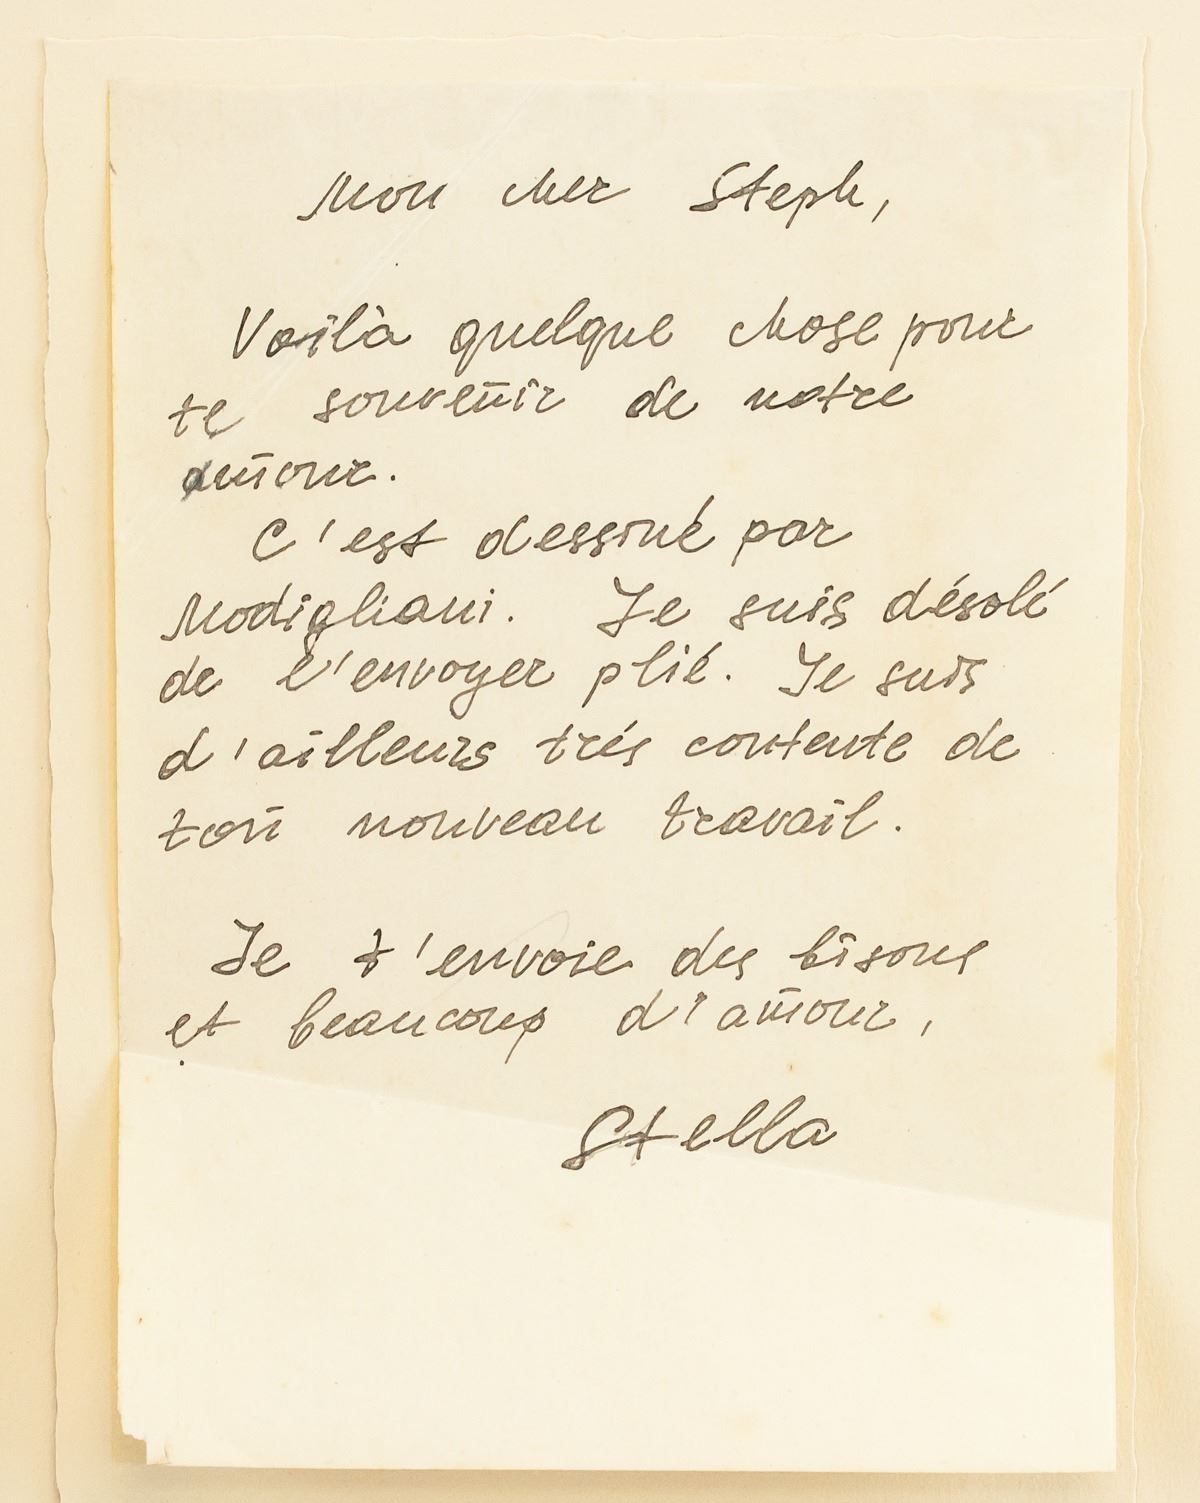 Mon cher Steph,
Voilà quelque chose pour
te souvenir de notre
amour.
C'est dessiné par
Modigliani. Je suis désolé
de l'envoyer plié. Je suis
d'ailleurs trés contente de
ton nouveau travail.
Je t'envoie des bisous
et beaucoup d'amour,
Stella